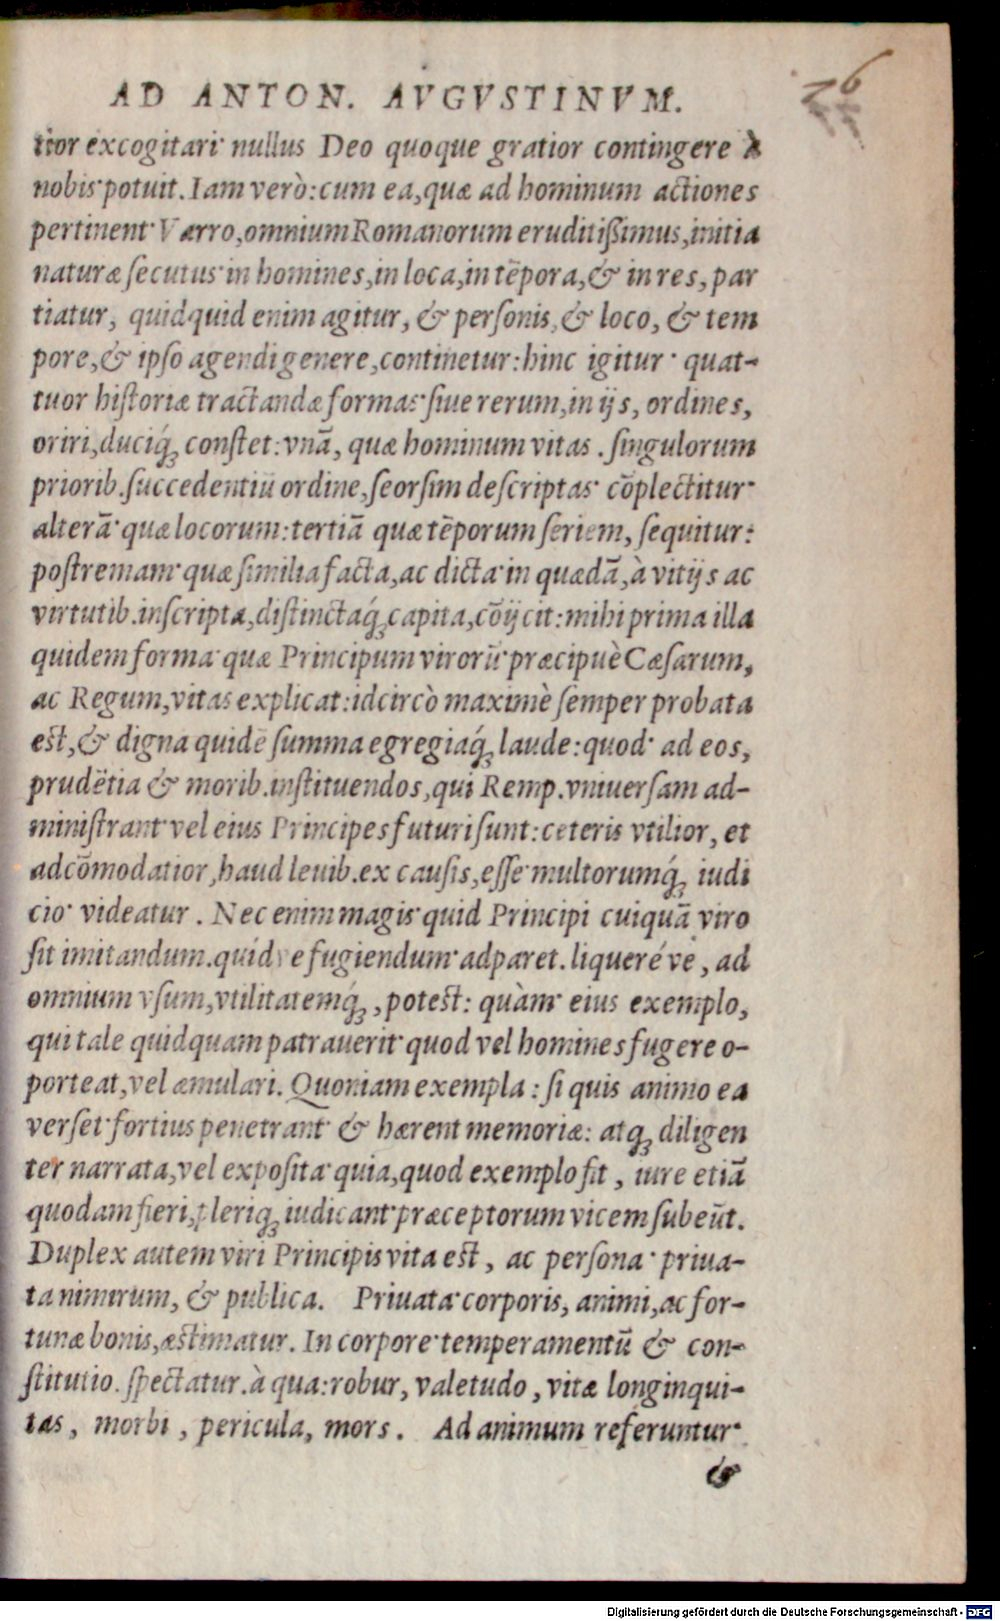 AD ANTON. AVGVSTINVM.
26
tior excogitari nullus Deo quoque gratior contingere à
nobis potuit. Iam verò: cum ea, quæ ad hominum actiones
pertinent Varro, omnium Romanorum eruditißimus, initia
naturæ secutus in homines, in loca, in tẽpora, & in res, par
tiatur, quidquid enim agitur, & personis, & loco, & tem
pore, & ipso agendi genere, continetur: hinc igitur quat-
tuor historiæ tractandæ formas siue rerum, in ijs, ordines,
oriri, duciq́ꝫ constet: vnã, quæ hominum vitas. singulorum
priorib. succedentiũ ordine, seorsim descriptas cõplectitur
alterã quæ locorum: tertiã quæ tẽporum seriem, sequitur:
postremam quæ similia facta, ac dicta in quædã, à vitijs ac
virtutib. inscripta, distinctaq́ꝫ capita, cõijcit: mihi prima illa
quidem forma quæ Principum virorũ præcipuè Cæsarum,
ac Regum, vitas explicat: idcircò maximè semper probata
est, & digna quidẽ summa egregiaq́ꝫ laude: quod ad eos,
prudẽtia & morib. instituendos, qui Remp. vniuersam ad-
ministrant vel eius Principes futuri sunt: ceteris vtilior, et
adcõmodatior, haud leuib. ex causis, esse multorumq́ꝫ iudi
cio videatur. Nec enim magis quid Principi cuiquã viro
sit imitandum. quidve fugiendum adparet. liqueréve, ad
omnium vsum, vtilitatemq́ꝫ, potest: quàm eius exemplo,
qui tale quidquam patrauerit quod vel homines fugere o-
porteat, vel æmulari. Quoniam exempla: si quis animo ea
verset fortius penetrant & hærent memoriæ: atqꝫ diligen
ter narrata, vel exposita quia, quod exemplo fit, iure etiã
quodam fieri, pleriqꝫ iudicant præceptorum vicem subeũt.
Duplex autem viri Principis vita est, ac persona priua-
ta nimirum, & publica. Priuata corporis, animi, ac for-
tunæ bonis, æstimatur. In corpore temperamentũ & con-
stitutio. spectatur. à qua: robur, valetudo, vitæ longinqui-
tas, morbi, pericula, mors. Ad animum referuntur
&
Digitalisierung gefördert durch die Deutsche Forschungsgemeinschaft - DFG